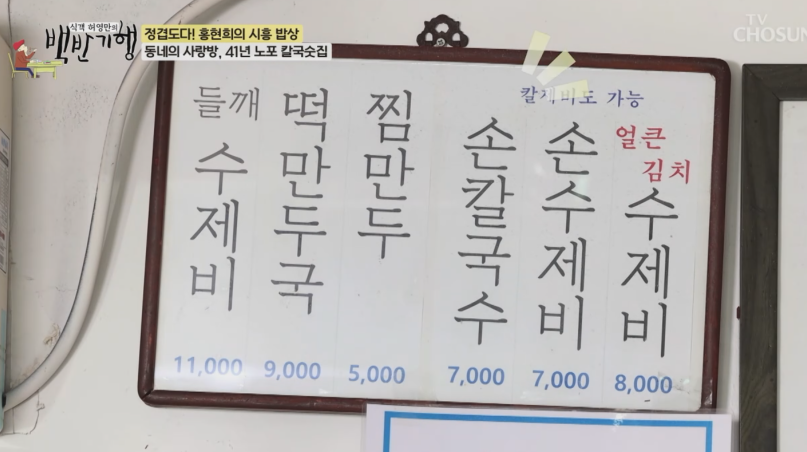 식객 허영만의
백반기행
정겹도다! 홍현희의 시흥 밥상
동네의 사랑방, 41년 노포 칼국숫집
TV
CHOSUN
들깨
수제비
11,000
떡만두국
9,000
찜만두
5,000
칼제비도 가능
손칼국수
7,000
손수제비
7,000
얼큰
김치
수제비
8,000